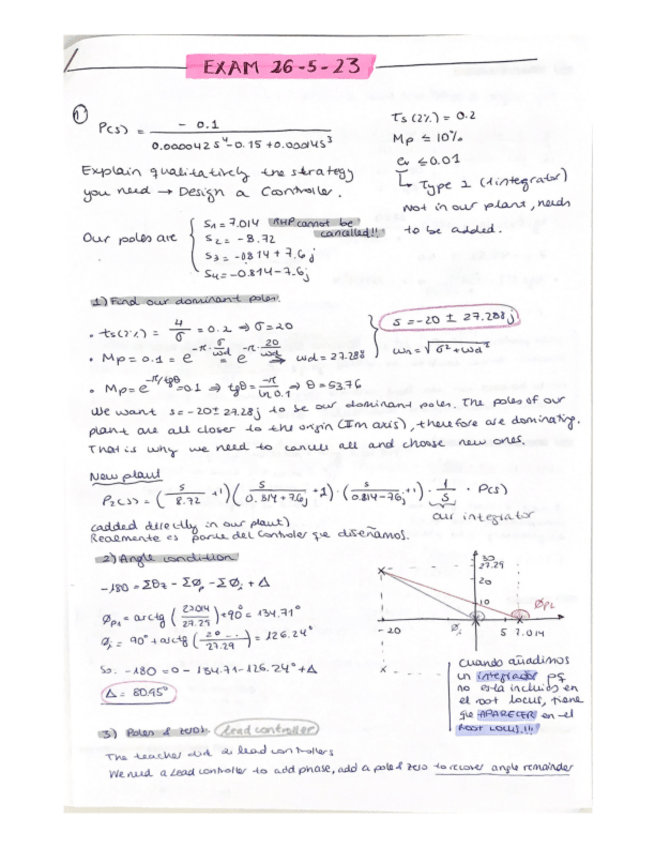 EXAM 26-5-23
1)
P(s) = - 0.1 / 0.000042 s⁴ - 0.15 + 0.00014 s³
ts (2%) = 0.2
Mp ≤ 10%
ev ≤ 0.01
↳ Type 1 (1 integrator)
Not in our plant, needs
to be added.
Explain qualitatively the strategy
you need → Design a Controller.
Our poles are
S1 = 7.014 RHP cannot be cancelled!!
S2 = -8.72
S3 = -0.814 + 7.6 j
S4 = -0.814 - 7.6 j
1) Find our dominant poles.
• ts(2%) = 4/σ = 0.2 ⇒ σ = 20
• Mp = 0.1 = e^(-π·σ/wd) = e^(-π·20/wd) ⇒ wd = 27.288
s = -20 ± 27.288j
wn = √(σ² + wd²)
• Mp = e^(-π/tgθ) = 0.1 ⇒ tgθ = -π/ln 0.1 ⇒ θ = 53.76
We want s = -20 ± 27.28j to be our dominant poles. The poles of our
plant are all closer to the origin (Im axis), therefore are dominating.
That is why we need to cancel all and choose new ones.
New plant
P2(s) = (s/8.72 + 1) (s/0.814+7.6j + 1) · (s/0.814-7.6j + 1) · 1/s · P(s)
our integrator
(added directly in our plant)
Realmente es parte del Controler que diseñamos.
2) Angle condition
-180 = Σθz - Σϕp - Σϕi + Δ
ϕp1 = arctg (27.014/27.29) + 90° = 134.71°
ϕi = 90° + arctg (20.../27.29) = 126.24°
So. -180 = 0 - 134.71 - 126.24° + Δ
Δ = 80.95°
30
27.29
20
10
ϕp1
ϕi
-20
5
7.014
cuando añadimos
un integrador pq
no esta incluido en
el root locus, tiene
que APARECER en el
ROOT LOCUS!!!
3) Poles & zeros. (lead controller)
The teacher did 2 lead controllers
We need a lead controller to add phase, add a pole & zero to recover angle remainder